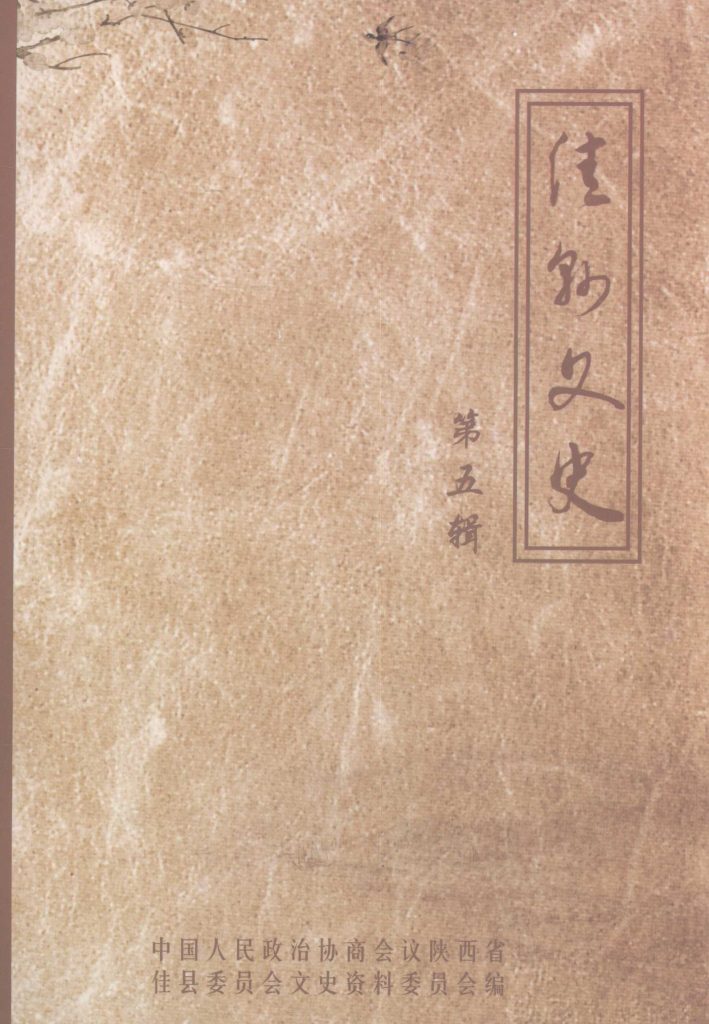 佳县文史
第五辑
中国人民政治协商会议陕西省
佳县委员会文史资料委员会编